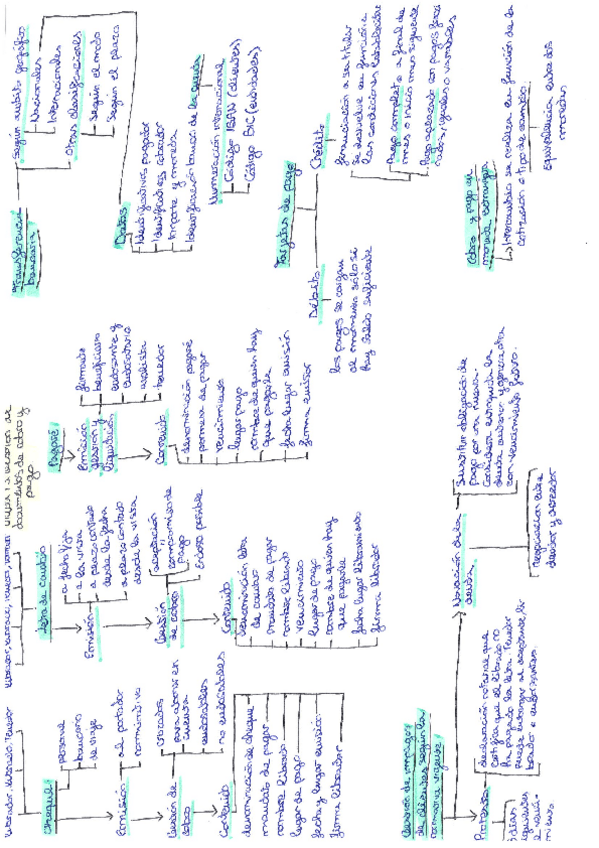 Librador, librado, Tenedor
Cheque
personal
bancario
de viaje
Emisión
al portador
nominativa
Gestión de
cobro
cruzados
para abonar en
cuenta
endosables
no endosables
Contenido
denominación de cheque
mandato de pago
nombre librado
lugar de pago
fecha y lugar emisión
firma librador
documentos de cobro y
pago
letra de cambio
Emisión
a fecha fija
a la vista
a plazo contado
desde la fecha
a plazo contado
desde la vista
Gestión
de cobro
aceptación
compromiso de
pago
Endoso posible
Contenido
denominación letra
de cambio
mandato de pago
nombre librado
vencimiento
lugar de pago
nombre de quien hay
que pagarle
fecha lugar libramiento
firma librador
Pagaré
Emisión
gestión y
liquidación
firmante
beneficiario
endosante y
endosatario
avalista
tenedor
Contenido
denominación pagaré
promesa de pagar
vencimiento
lugar pago
nombre de quien hay
que pagarle
fecha lugar emisión
firma emisor
Gestión de impagos
de clientes según la
normativa vigente
Protesto
declaración notarial que
certifica que el librado no
ha pagado la letra. Tenedor
Novación de la
deuda
Sustituir obligación de
pago por una nueva.
deuda anterior y genera otra
con vencimiento futuro.
Negociación entre
deudor y acreedor
Transferencia
bancaria
Según ámbito geográfico
Nacionales
Internacionales
Otras clasificaciones
Según el modo
Según el plazo
Datos
Identificativos pagador
Identificativos cobrador
Importe y moneda
Identificación banco de la cuenta
Numeración internacional
Código IBAN (clientes)
Código BIC (entidades)
Tarjetas de pago
Débito
los pagos se cargan
al momento sólo si
hay saldo suficiente
Crédito
financiación a su titular
Se devuelve en función a
las condiciones establecidas
Pago completo a final de
mes o inicio mes siguiente
Pago aplazado con pagos fraccio-
nados, iguales o variables
Cobro y pago en
moneda extranjera
Intercambio se realiza en función de la
cotización o tipo de cambio
Equivalencia entre dos
monedas